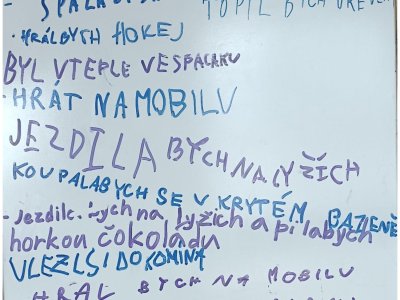 TOPIL BYCH
· HRÁLBYCH HOKEJ
BYL VTEPLE VESPACAKU
· HRÁT NAMOBILU
JEZDILA BYCH NA LYŽÍCH
KOUPALABYCH SE V KRYTÉM BAZENĚ
- Jezdil. bych na lyžích a pila bych
horkou čokoládu
VLEZL SI DO KOMINA
HRÁL BYCH NA MOBILU